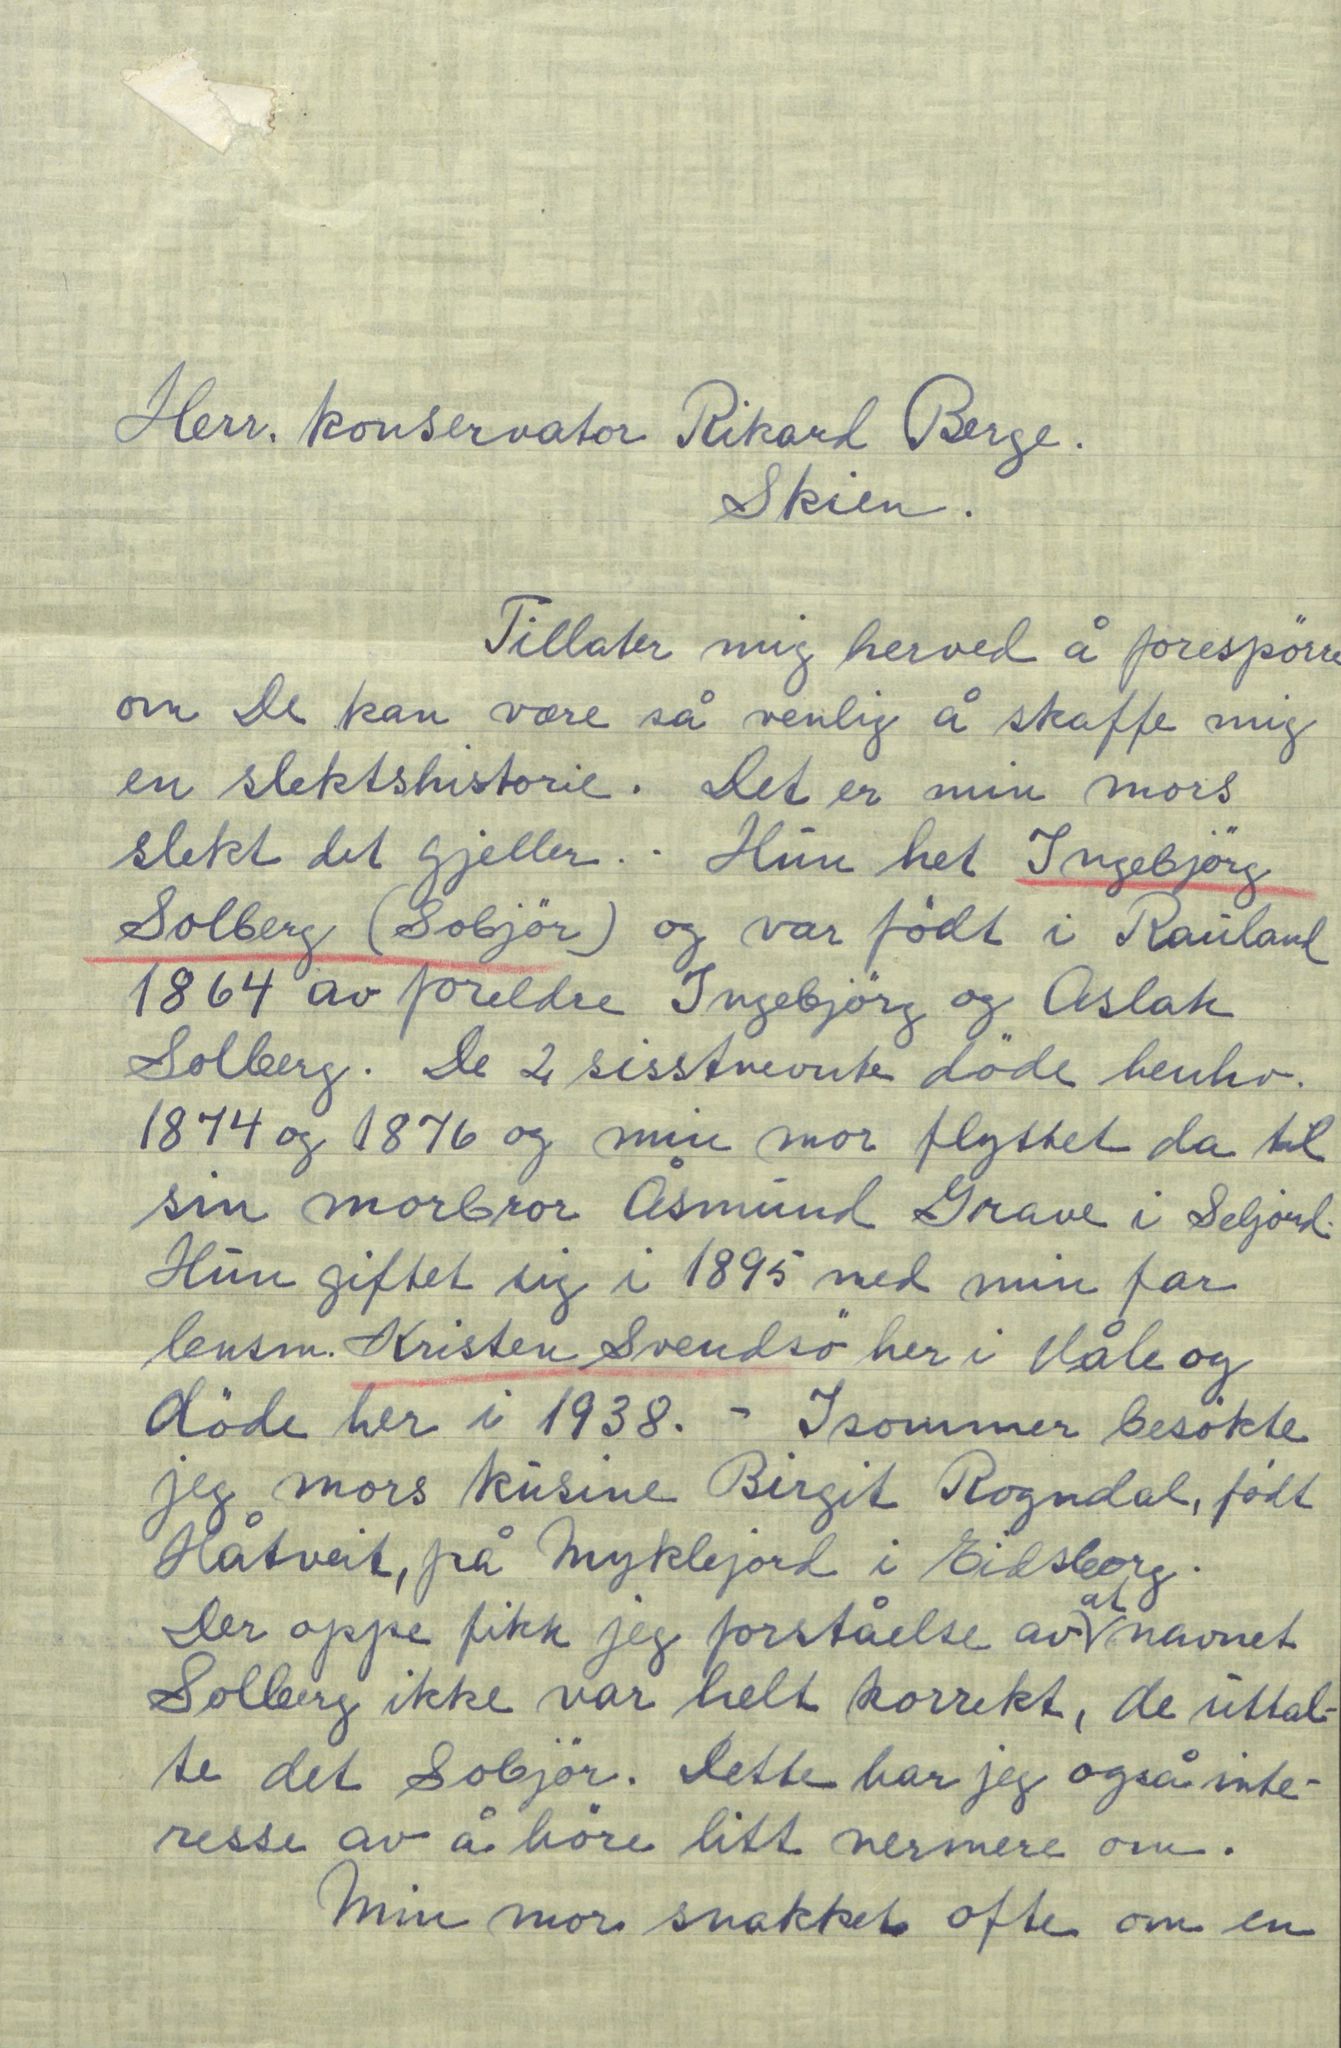 Herr. Konservator Rikard Berge.
Skien.
Tillater mig herved å forespörre
om De kan være så venlig å skaffe mig
en slektshistorie. Det er min mors
slekt det gjeller. - Hun het Ingebjörg
Solberg (Sobjör) og var födt i Rauland
1864 av foreldre Ingebjörg og Aslak
Solberg. De 2 sisstnevnte döde henhv.
1874 og 1876 og min mor flyttet da til
sin morbror Åsmund Grave i Seljord.
Hun giftet sig i 1895 med min far
lensm. Kristen Svendsö her i Våle og
döde her i 1938. - Isommer besökte
jeg mors kusine Birgit Rogndal, födt
Håtveit, på Myklejord i Eidsborg.
Der oppe fikk jeg forståelse av at navnet
Solberg ikke var helt korrekt, de uttal-
te det Sobjör. Dette har jeg også inte-
resse av å höre litt nermere om.
Min mor snakket ofte om en